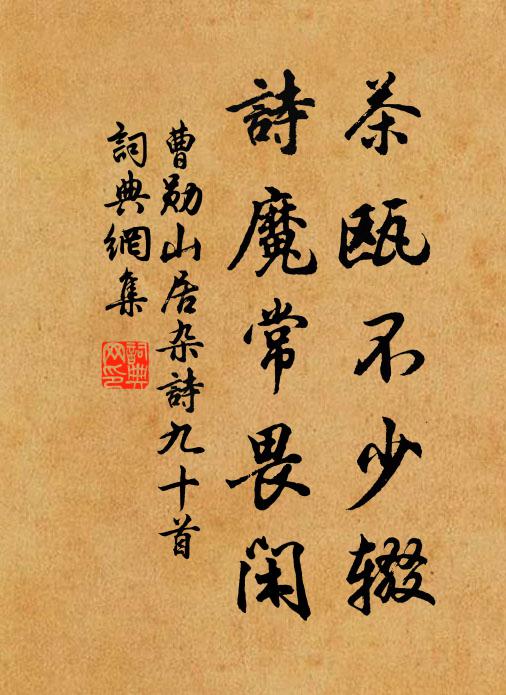 茶瓯不少辍
詩魔常畏闲
曹勋山居杂詩九十首
詞典網集
詞典網印